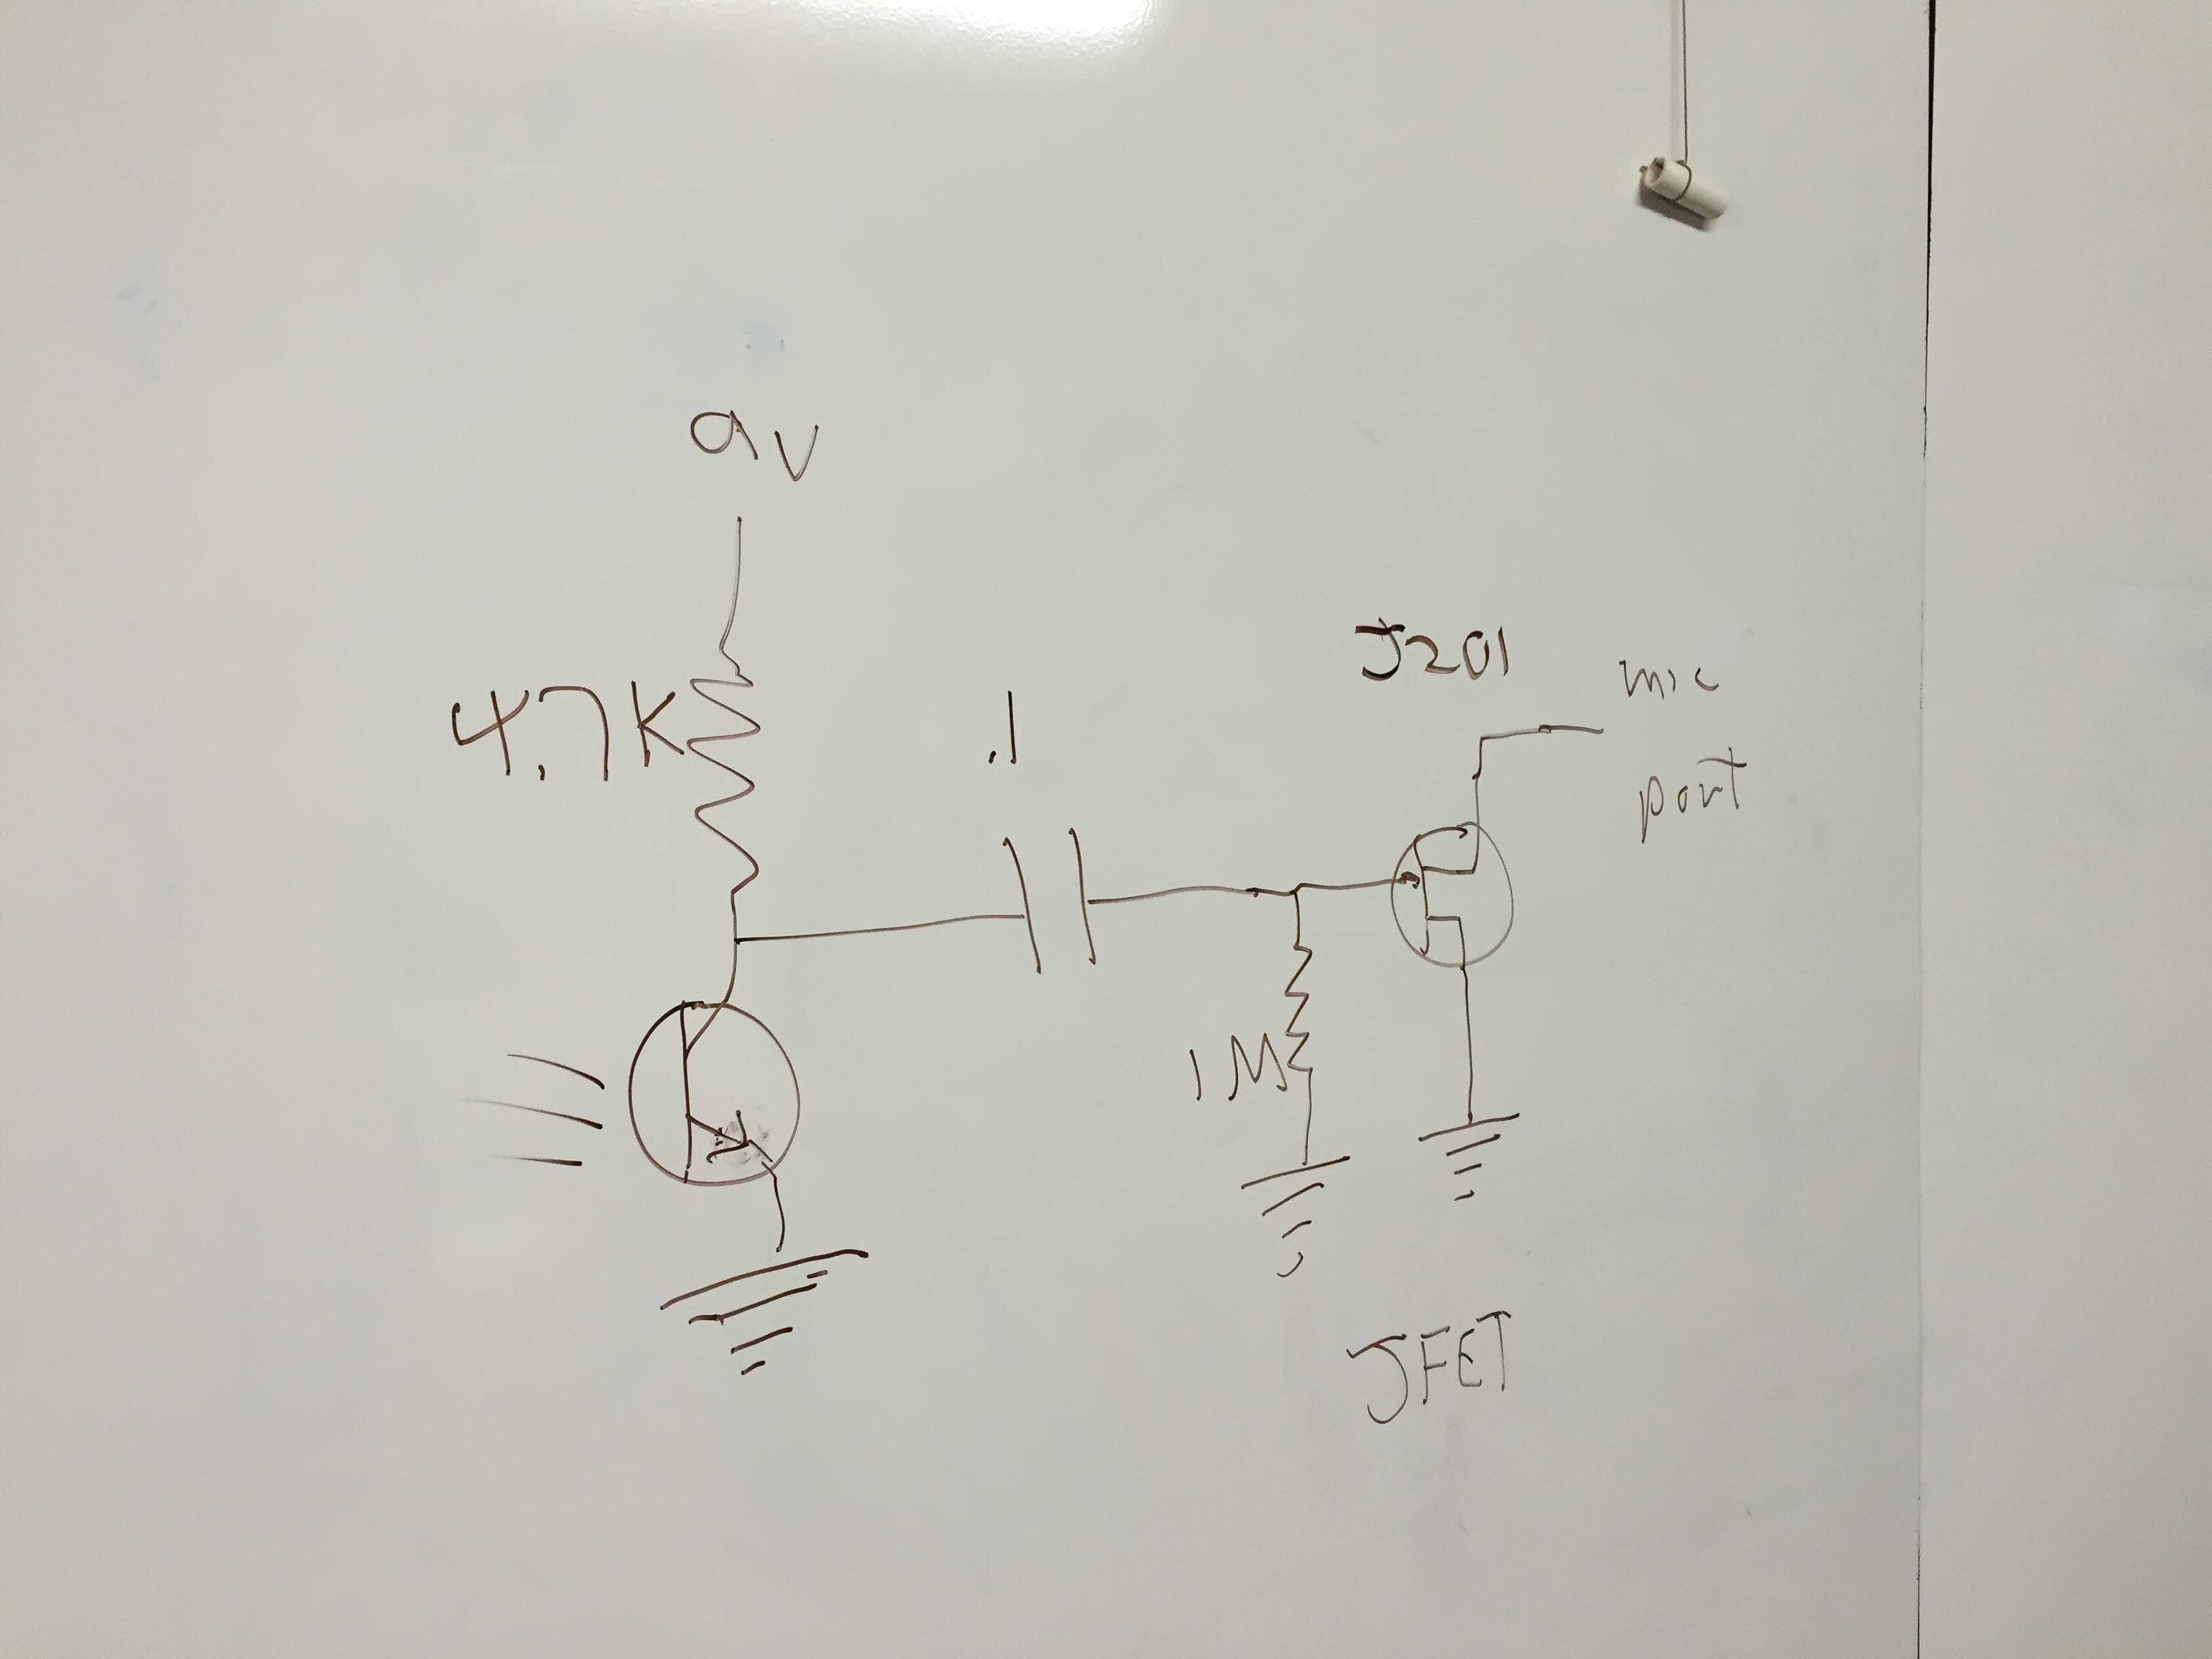 9V
4.7K
.1
J201
mic
port
1M
JFET